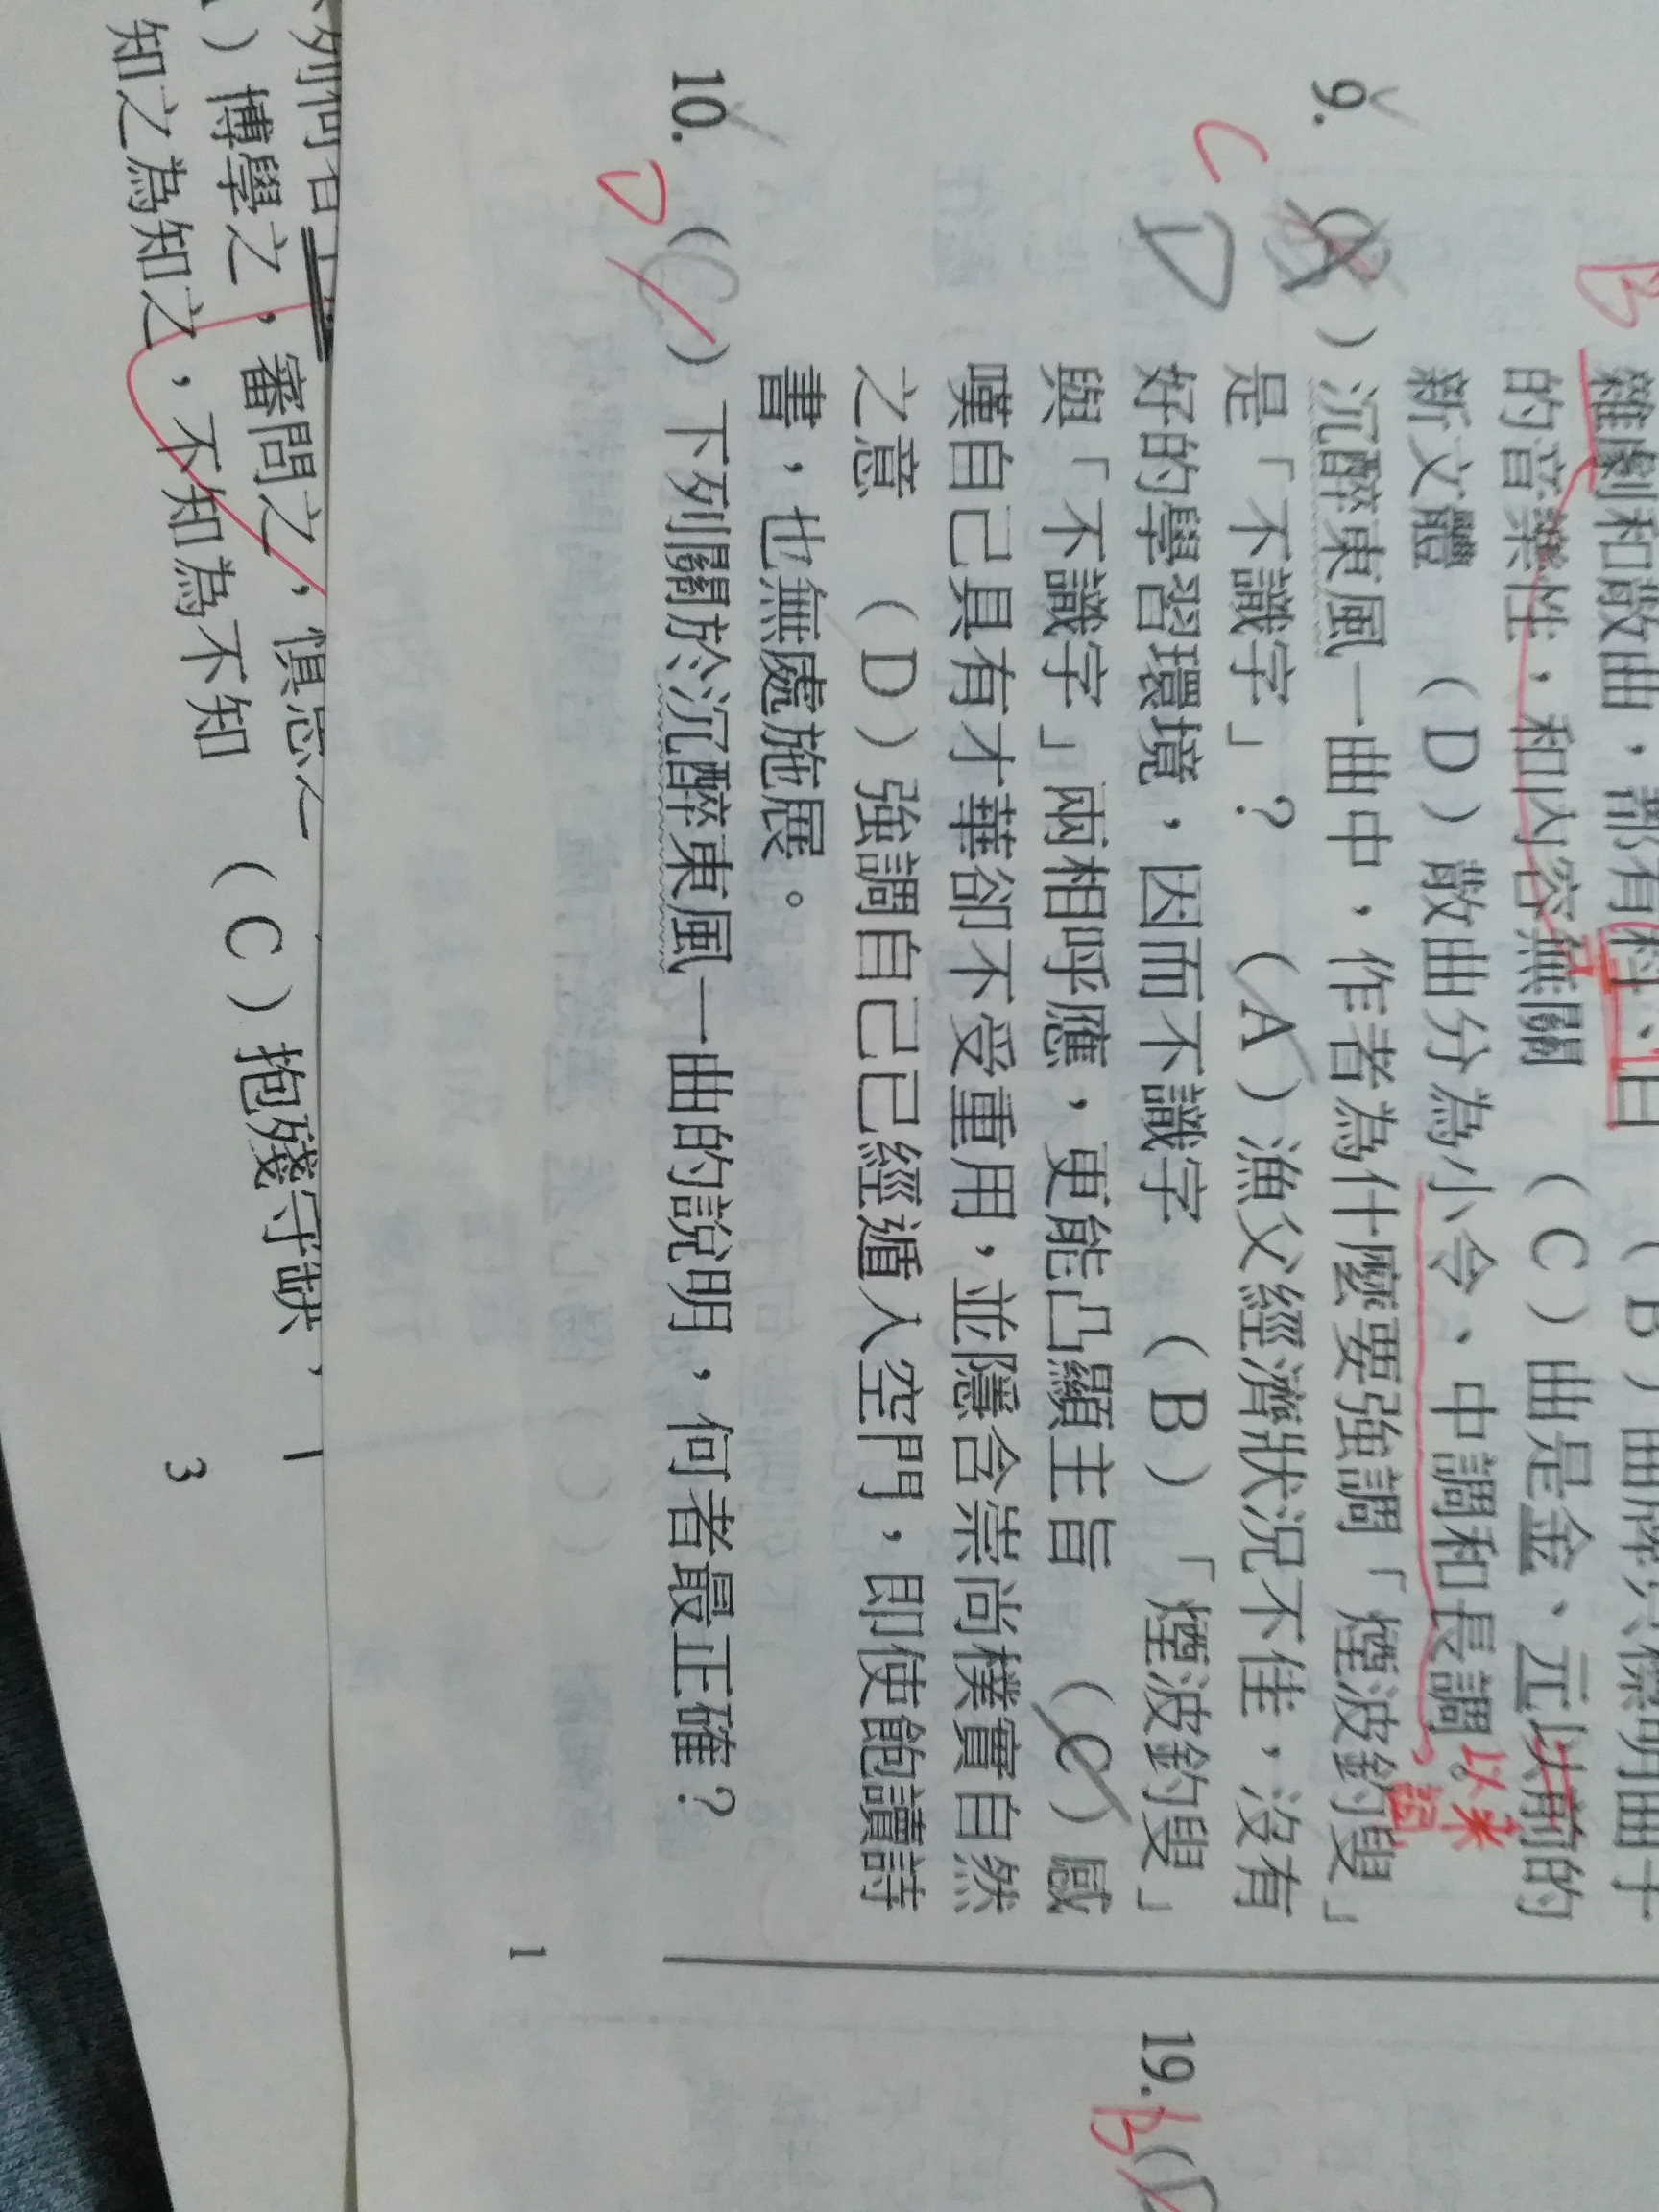 B
雜劇和散曲，都有科、白 （B）曲牌只標明曲子
的音樂性，和內容無關 （C）曲是金、元以前的
以來
新文體 （D）散曲分為小令、中調和長調。
9. C D ）沉醉東風一曲中，作者為什麼要強調「煙波釣叟」
是「不識字」？ （A）漁父經濟狀況不佳，沒有
好的學習環境，因而不識字 （B）「煙波釣叟」
與「不識字」兩相呼應，更能凸顯主旨 （C）感
嘆自己具有才華卻不受重用，並隱含崇尚樸實自然
之意 （D）強調自己已經遁入空門，即使飽讀詩
書，也無處施展。
10. D （C）下列關於沉醉東風一曲的說明，何者最正確？
1
）博學之，審問之，慎思之 （C）抱殘守缺，
知之為知之，不知為不知
3
19. B（D